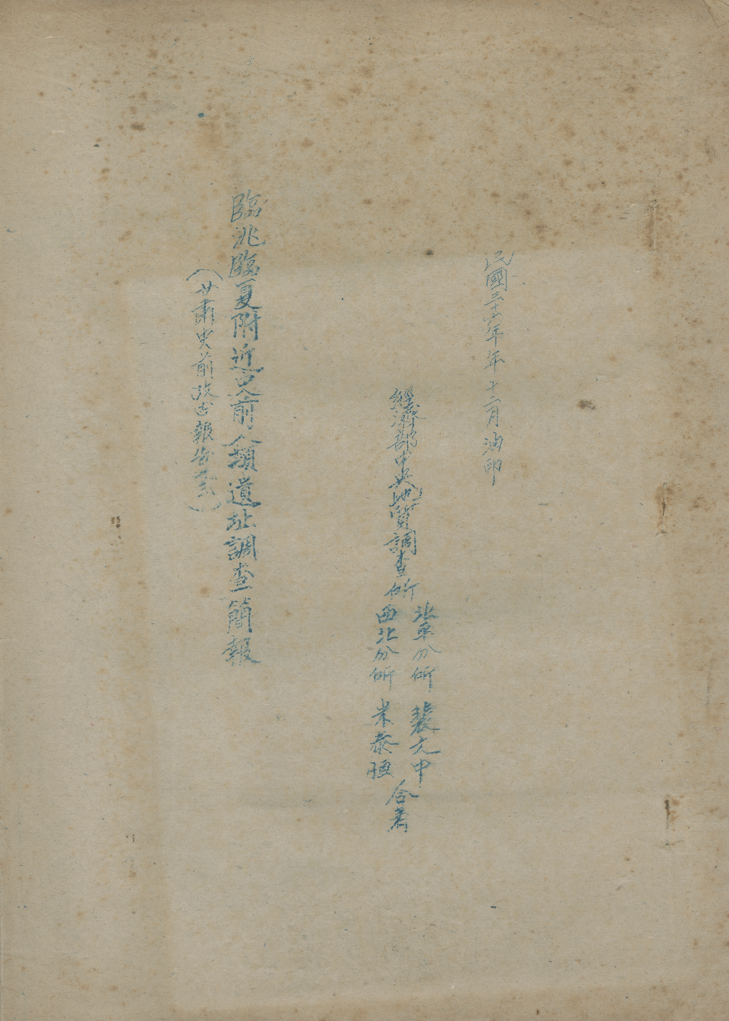 民國三十六年年十二月油印
經濟部中央地質調查所
北平分所 裴文中
西北分所 米泰恒
合著
臨洮臨夏附近史前人類遺址調查簡報
(甘肅史前考古報告之三)